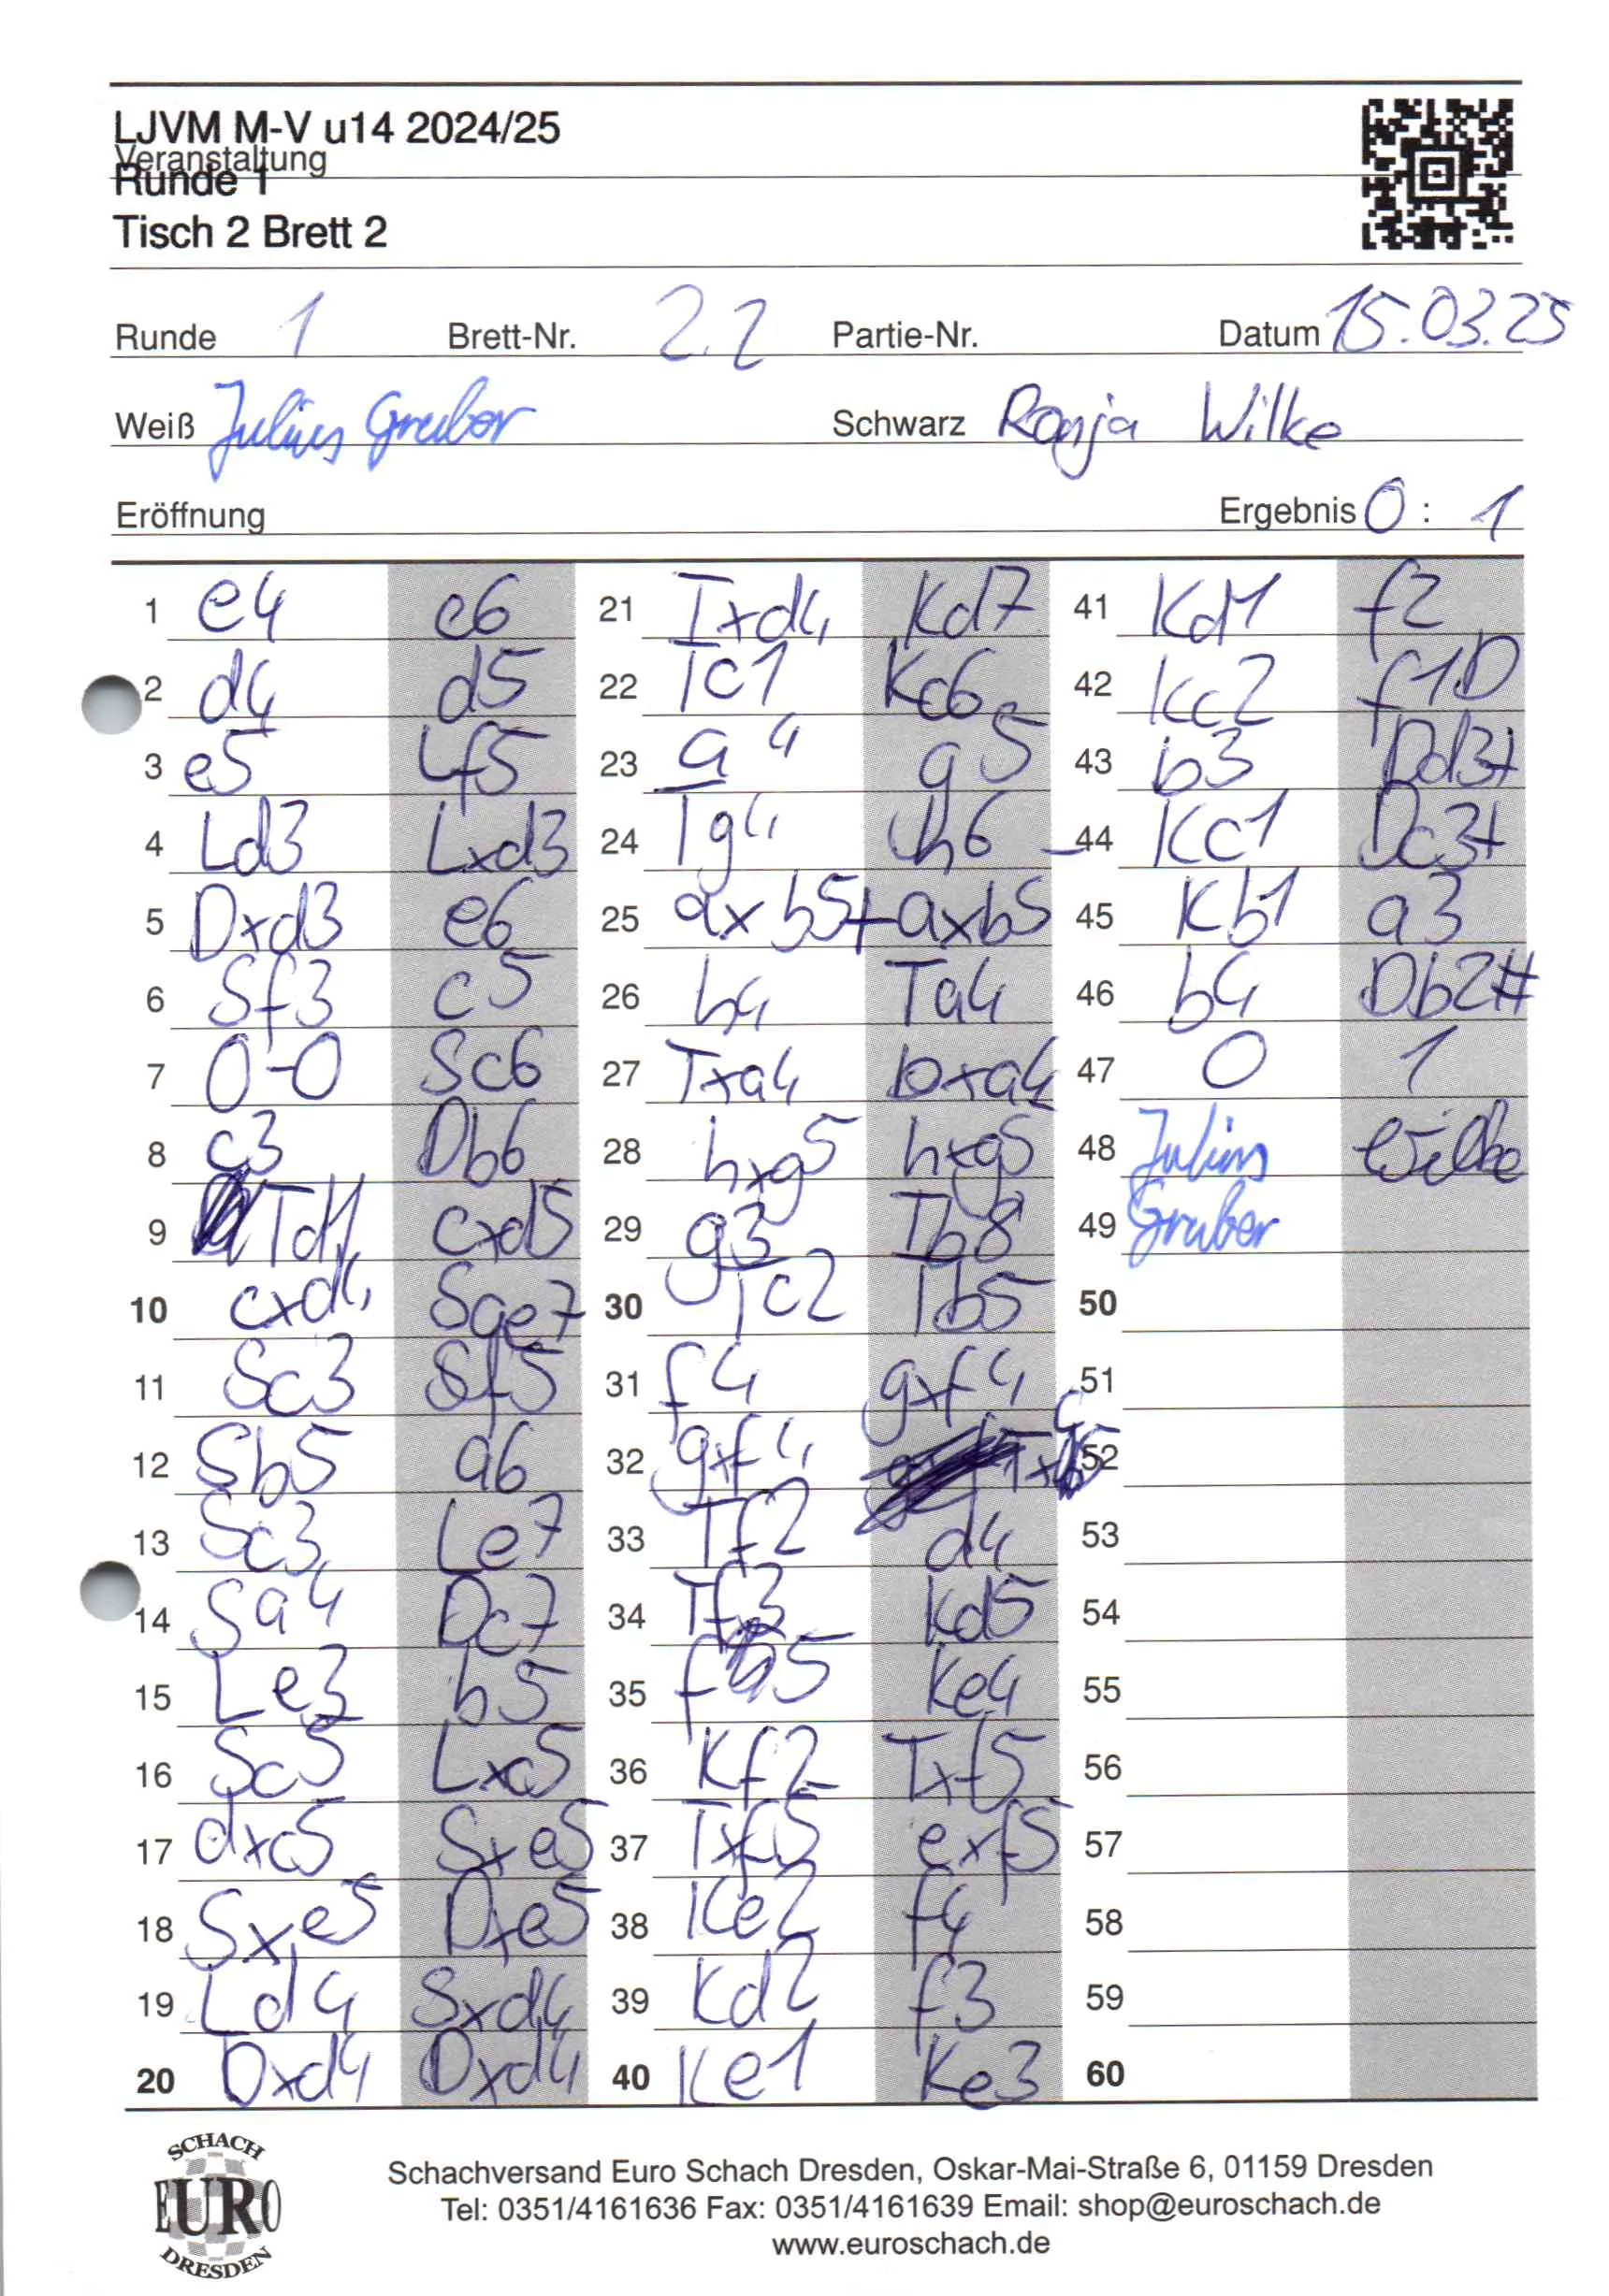 LJVM M-V u14 2024/25
Veranstaltung
Runde 1
Tisch 2 Brett 2
Runde 1 Brett-Nr. 2.2 Partie-Nr. Datum 15.03.25
Weiß Julius Gruber Schwarz Ronja Wilke
Eröffnung Ergebnis 0 : 1
1 e4 c6
2 d4 d5
3 e5 Lf5
4 Ld3 Lxd3
5 Dxd3 e6
6 Sf3 c5
7 0-0 Sc6
8 c3 Db6
9 Td1 cxd5
10 cxd4 Sge7
11 Sc3 Sf5
12 Sb5 a6
13 Sc3 Le7
14 Sa4 Dc7
15 Le3 b5
16 Sc5 Lxc5
17 dxc5 Sxe5
18 Sxe5 Dxe5
19 Ld4 Sxd4
20 Dxd4 Dxd4
21 Txd4 Kd7
22 Tc1 Kc6
23 a4 g5
24 Tg4 h6
25 axb5+ axb5
26 h4 Ta4
27 Txa4 bxa4
28 hxg5 hxg5
29 g3 Tb8
30 Tc2 Tb5
31 f4 gxf4
32 gxf4 Txc5
33 Tf2 d4
34 Tf3 Kd5
35 f5 Ke4
36 Kf2 Txf5
37 Txf5 exf5
38 Ke2 f4
39 Kd2 f3
40 Ke1 Ke3
41 Kd1 f2
42 Kc2 f1D
43 b3 Dd3+
44 Kc1 Dc3+
45 Kb1 a3
46 b4 Db2#
47 0 1
48 Julius Wilke
49 Gruber
50
51
52
53
54
55
56
57
58
59
60
SCHACH
EURO
DRESDEN
Schachversand Euro Schach Dresden, Oskar-Mai-Straße 6, 01159 Dresden
Tel: 0351/4161636 Fax: 0351/4161639 Email: shop@euroschach.de
www.euroschach.de